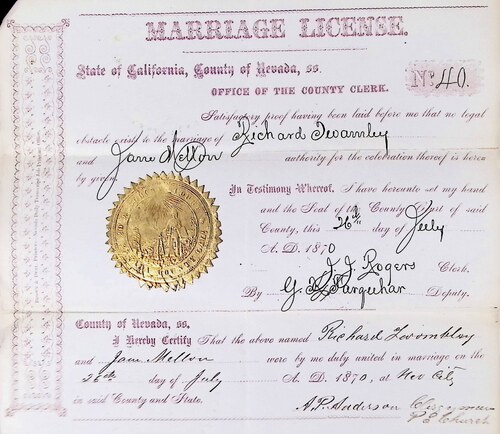 MARRIAGE LICENSE.
State of California, County of Nevada, ss.
No. 40.
OFFICE OF THE COUNTY CLERK.
Satisfactory proof having been laid before me that no legal
obstacle exist to the marriage of Richard Twamley
and Jane Mellon authority for the celebration thereof is hereby
by given.
In Testimony Whereof, I have hereunto set my hand
and the Seal of the County Court of said
County, this 26th day of July
A. D. 1870
J. J. Rogers Clerk.
By G. K. Farquhar Deputy.
County of Nevada, ss.
I Hereby Certify That the above named Richard Twombley
and Jane Mellon were by me duly united in marriage on the
26th day of July A. D. 1870, at Nev City
in said County and State.
A. P. Anderson Clergyman
P. E. Church